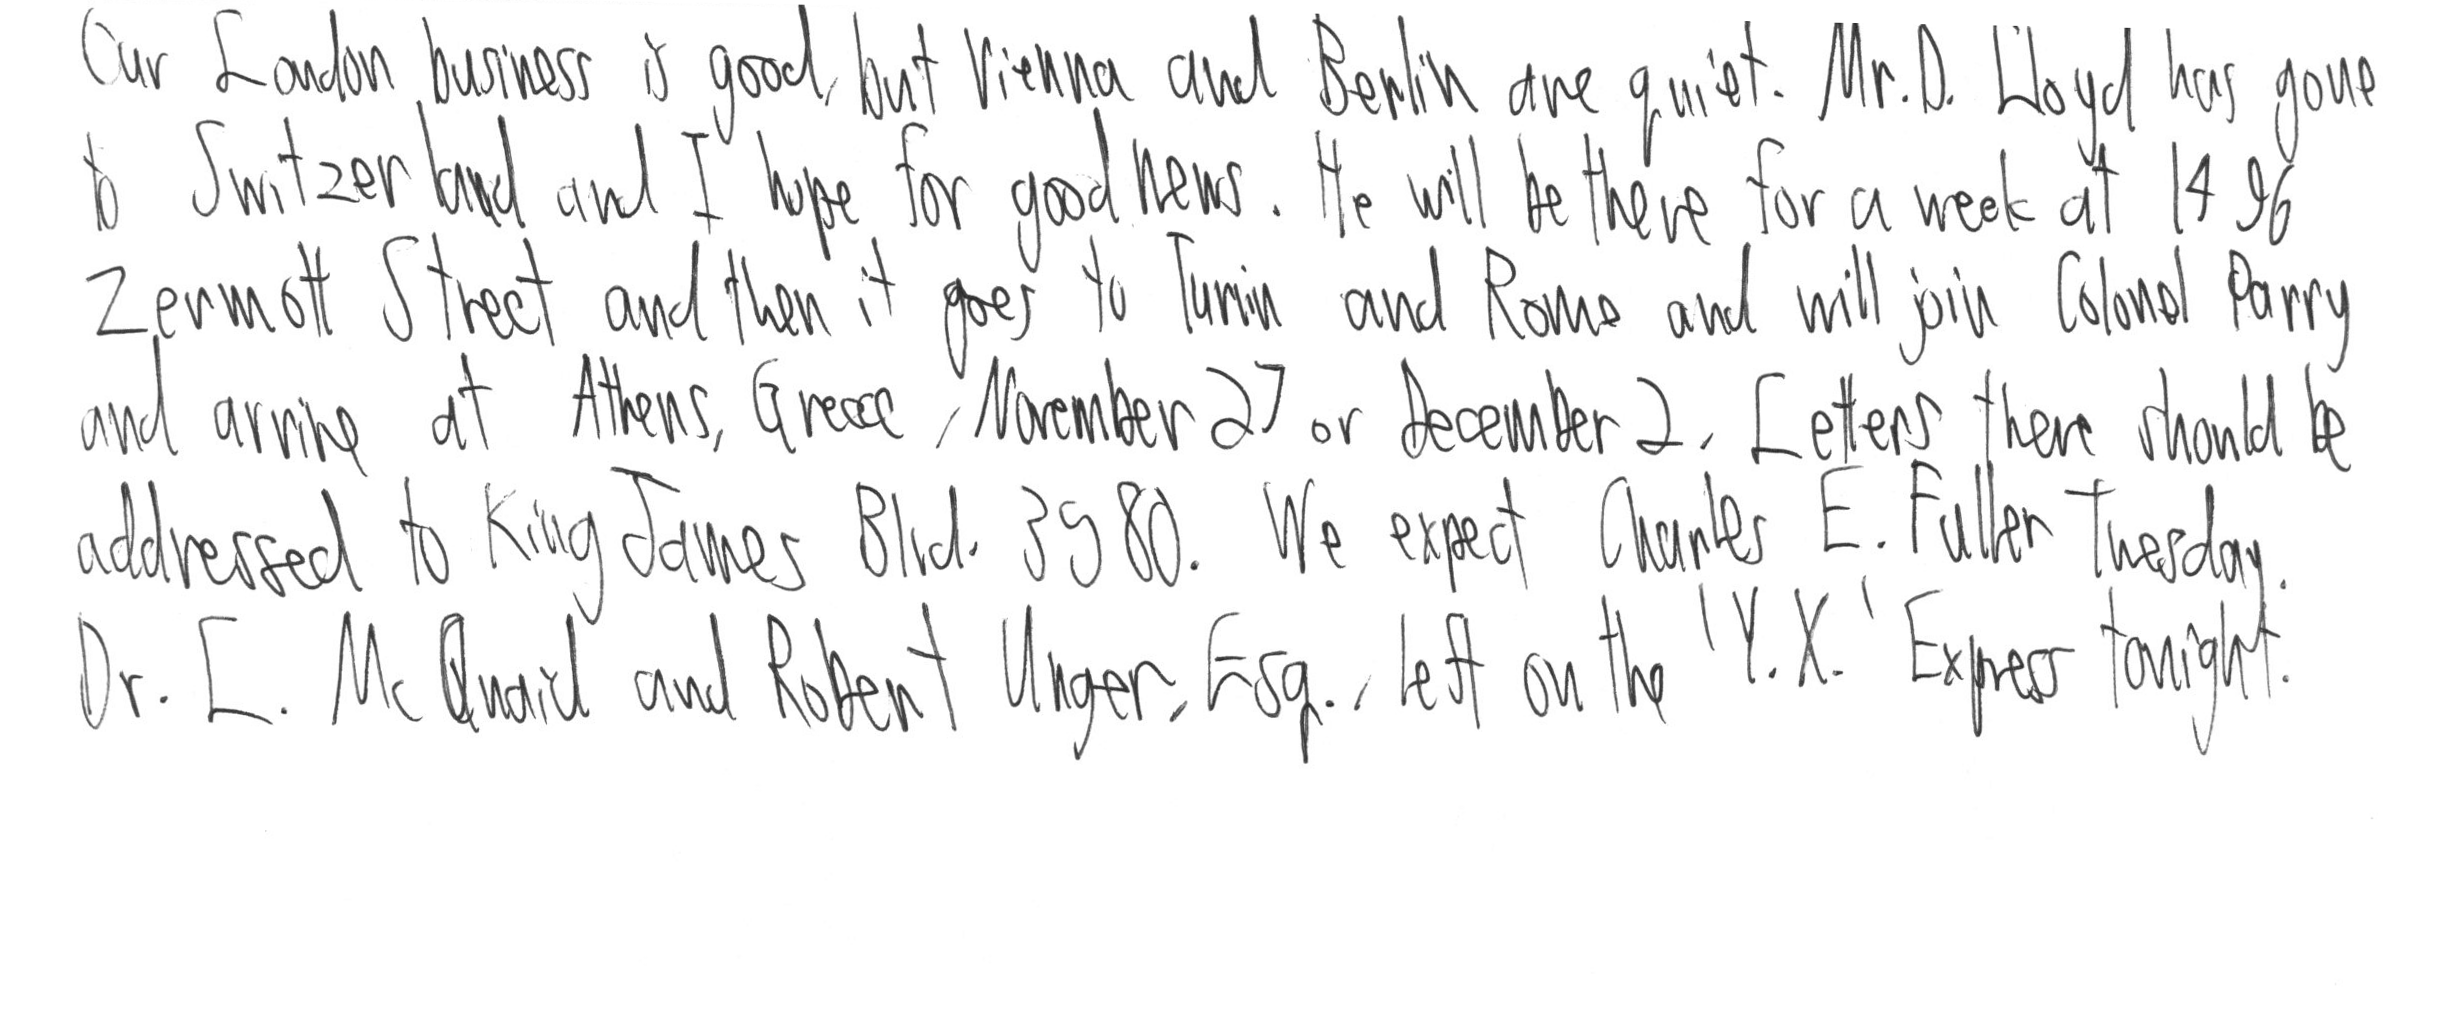 Our London business is good, but Vienna and Berlin are quiet. Mr. D. Lloyd has gone
to Switzerland and I hope for good news. He will be there for a week at 1496
Zermott Street and then it goes to Turin and Rome and will join Colonel Parry
and arrive at Athens, Greece, November 27 or December 2. Letters there should be
addressed to King James Blvd. 3580. We expect Charles E. Fuller Tuesday.
Dr. L. McQuaid and Robert Unger, Esq., left on the 'Y.X.' Express tonight.